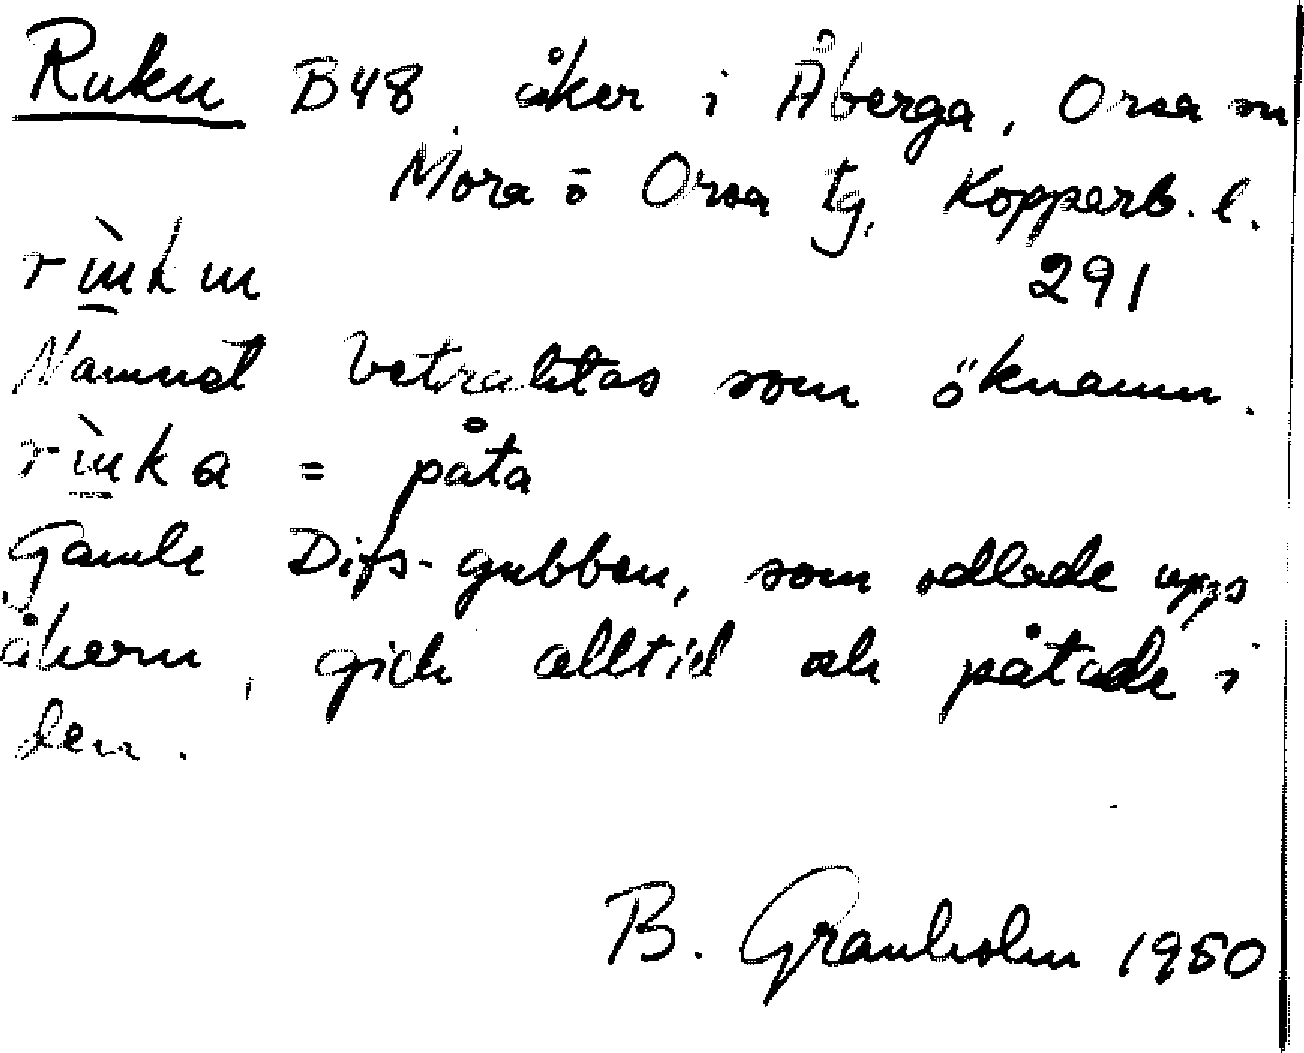 Ruku B48 åker i Åberga, Orsa sn
Mora o Orsa tg, Kopparb. l.
291
Namnet betraktas som öknamn.
= påta
Gamle Difs-gubben, som odlade upp
åkern, gick alltid och påtade i
den.
B. Granholm 1950